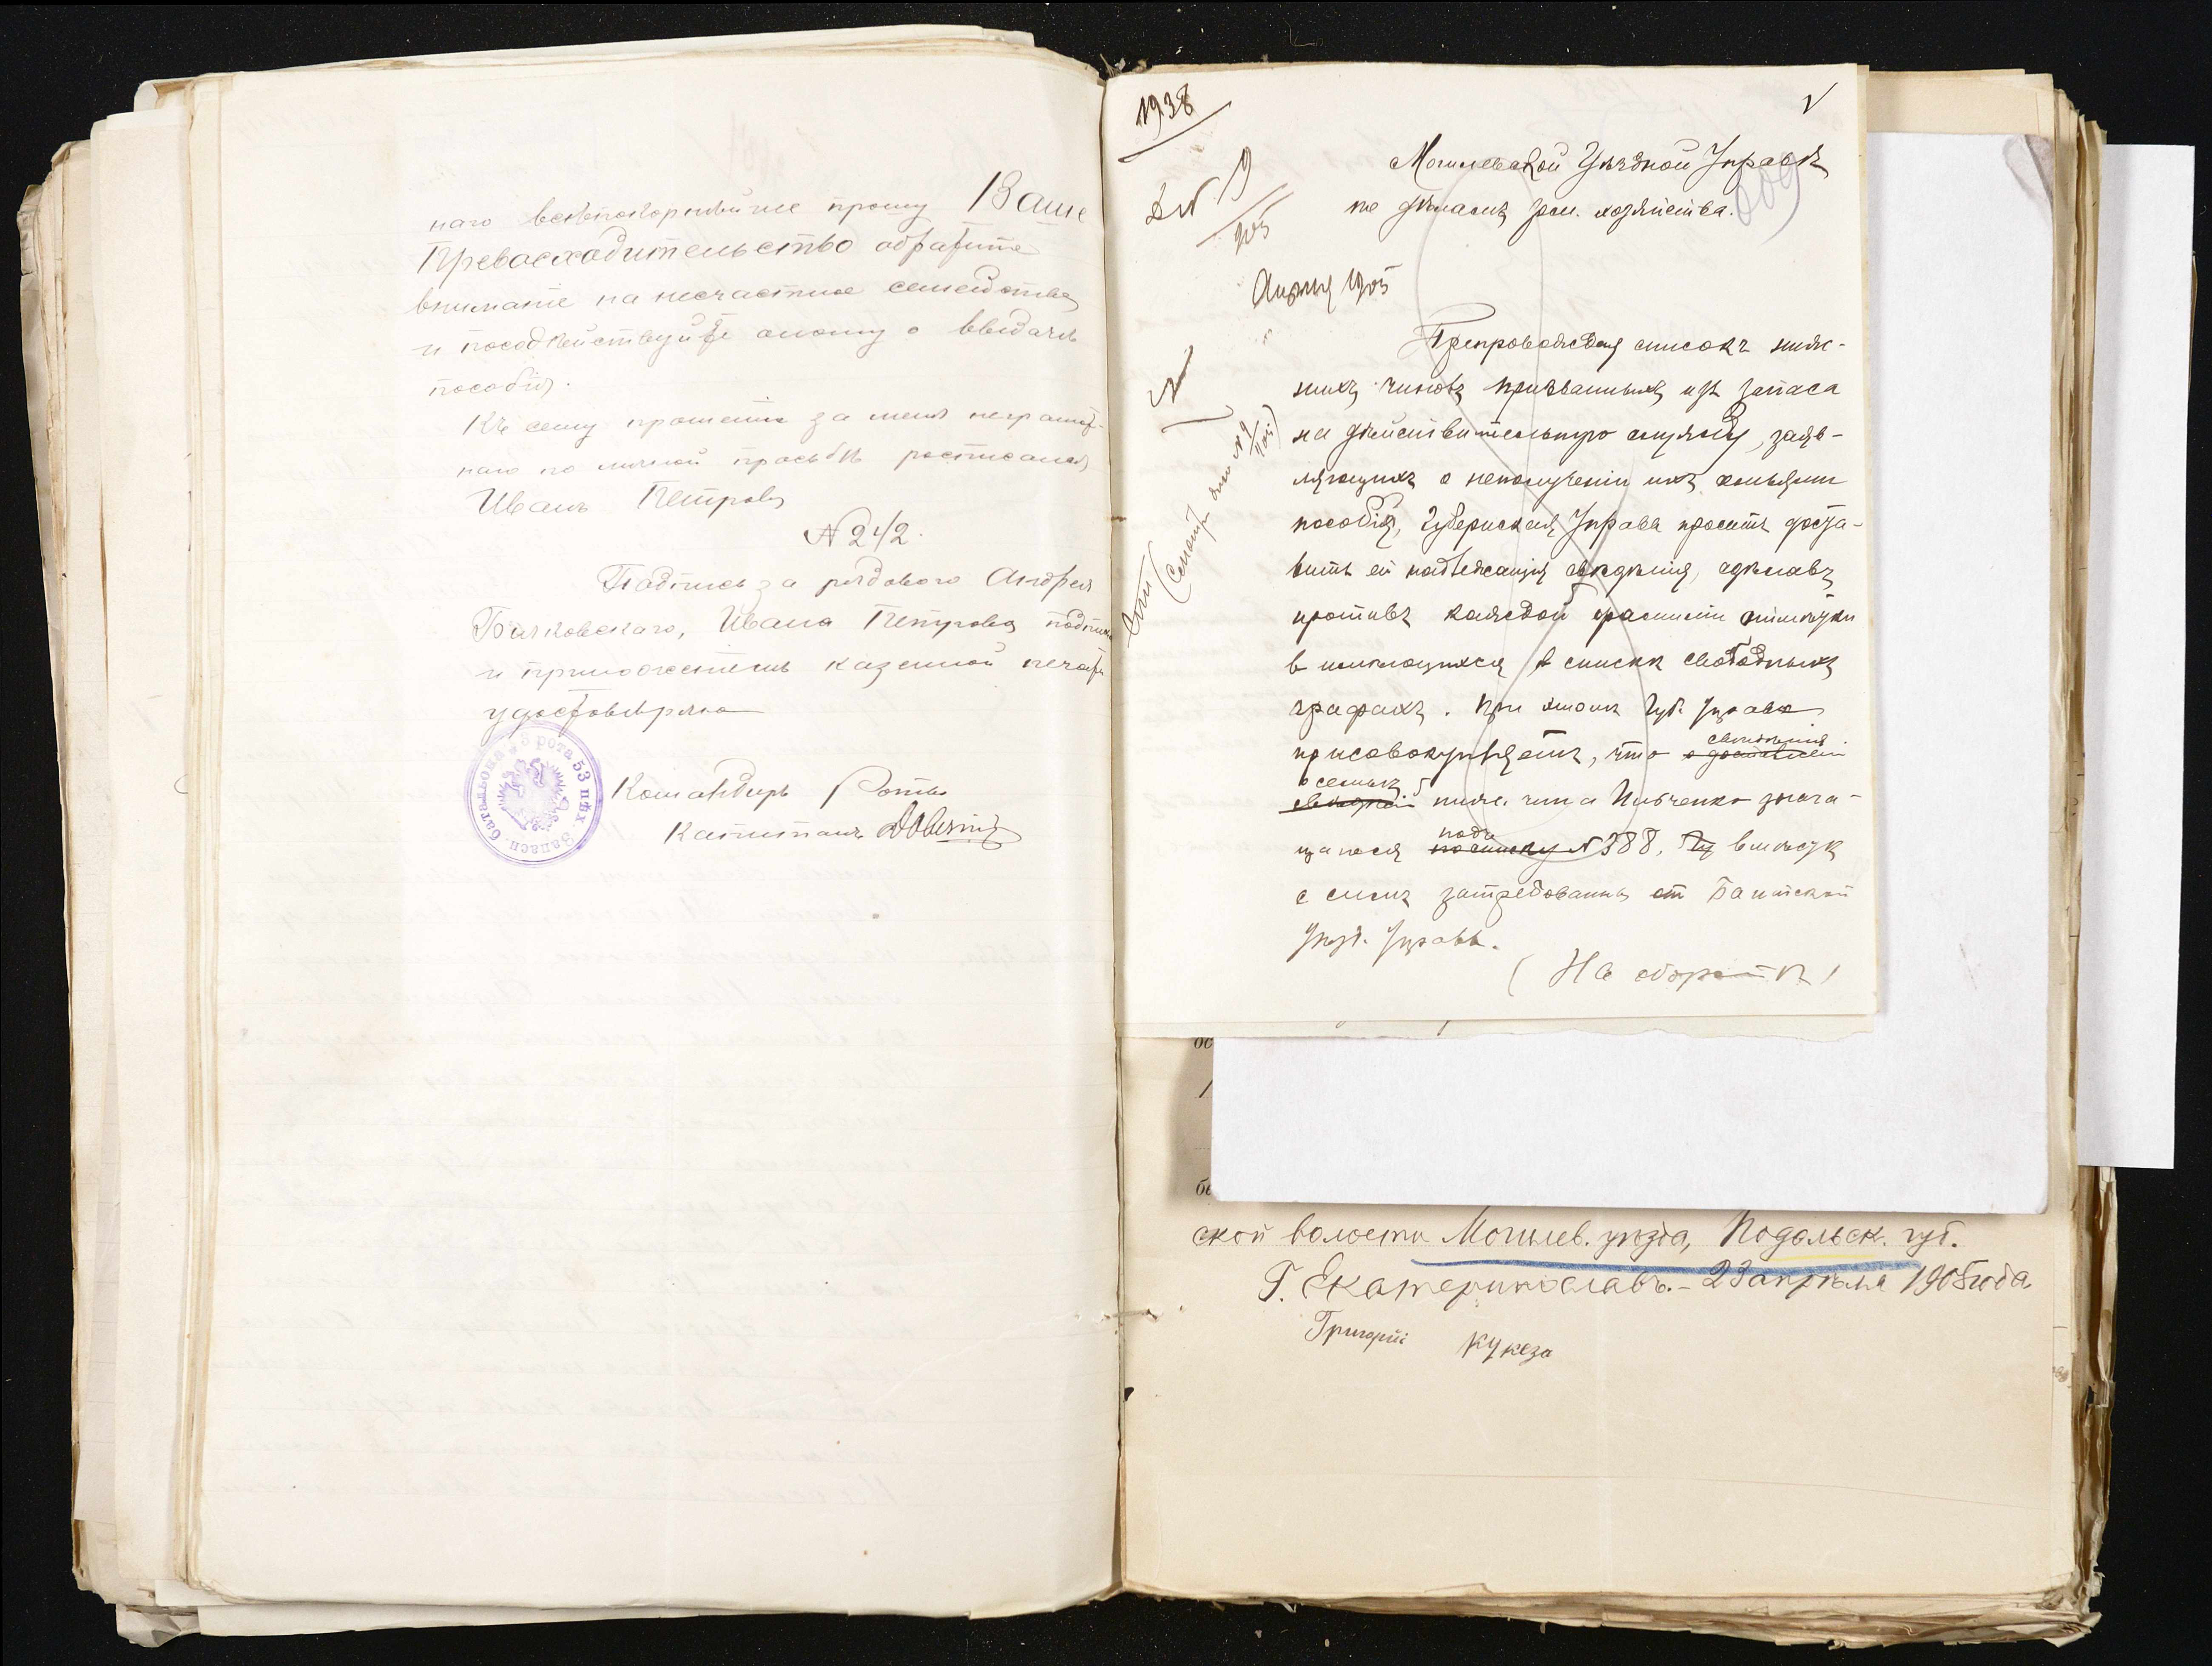 наго всепокорнѣйше прошу Ваше
Превосходительство обратите
вниманіе на несчастное семейство
и посодѣйствуйте оному о выдачѣ
пособія.
Къ сему прошенію за меня неграмот-
наго по личной просьбѣ росписался
Иванъ Петровъ
№ 242.
Подпись за рядового Андрея
Бялковскаго, Ивана Петрова подписью
и приложеніемъ казенной печати
удостовѣряю
Командиръ Роты
Капитанъ
рота 53 пѣх. Запасн. баталіона
1938
№ 19
905
Апрѣля 1905
Могилевской Уѣздной Управѣ
по дѣламъ зем. хозяйства.
Препровождая списокъ ниж-
нихъ чиновъ призванныхъ изъ запаса
на дѣйствительную службу, заяв-
ляющихъ о неполученіи ихъ семьями
пособія, Губернская Управа проситъ доста-
вить ей надлежащія свѣдѣнія, сдѣлавъ
противъ каждой фамиліи отмѣтки
в имѣющихся в спискѣ свободныхъ
графахъ. При этомъ Губ. Управа
присовокупляетъ, что свѣдѣнія
о семьѣ
нижн. чина Ивченко знача-
щагося подъ № 388, вмѣстѣ
с симъ затребованы от Балтской
Уѣзд. Управы.
(На оборотѣ)
ской волости Могилев. уѣзда, Подольск. губ.
Г. Екатеринославъ. - 23 апрѣля 1905 года
Григорій Кукеза